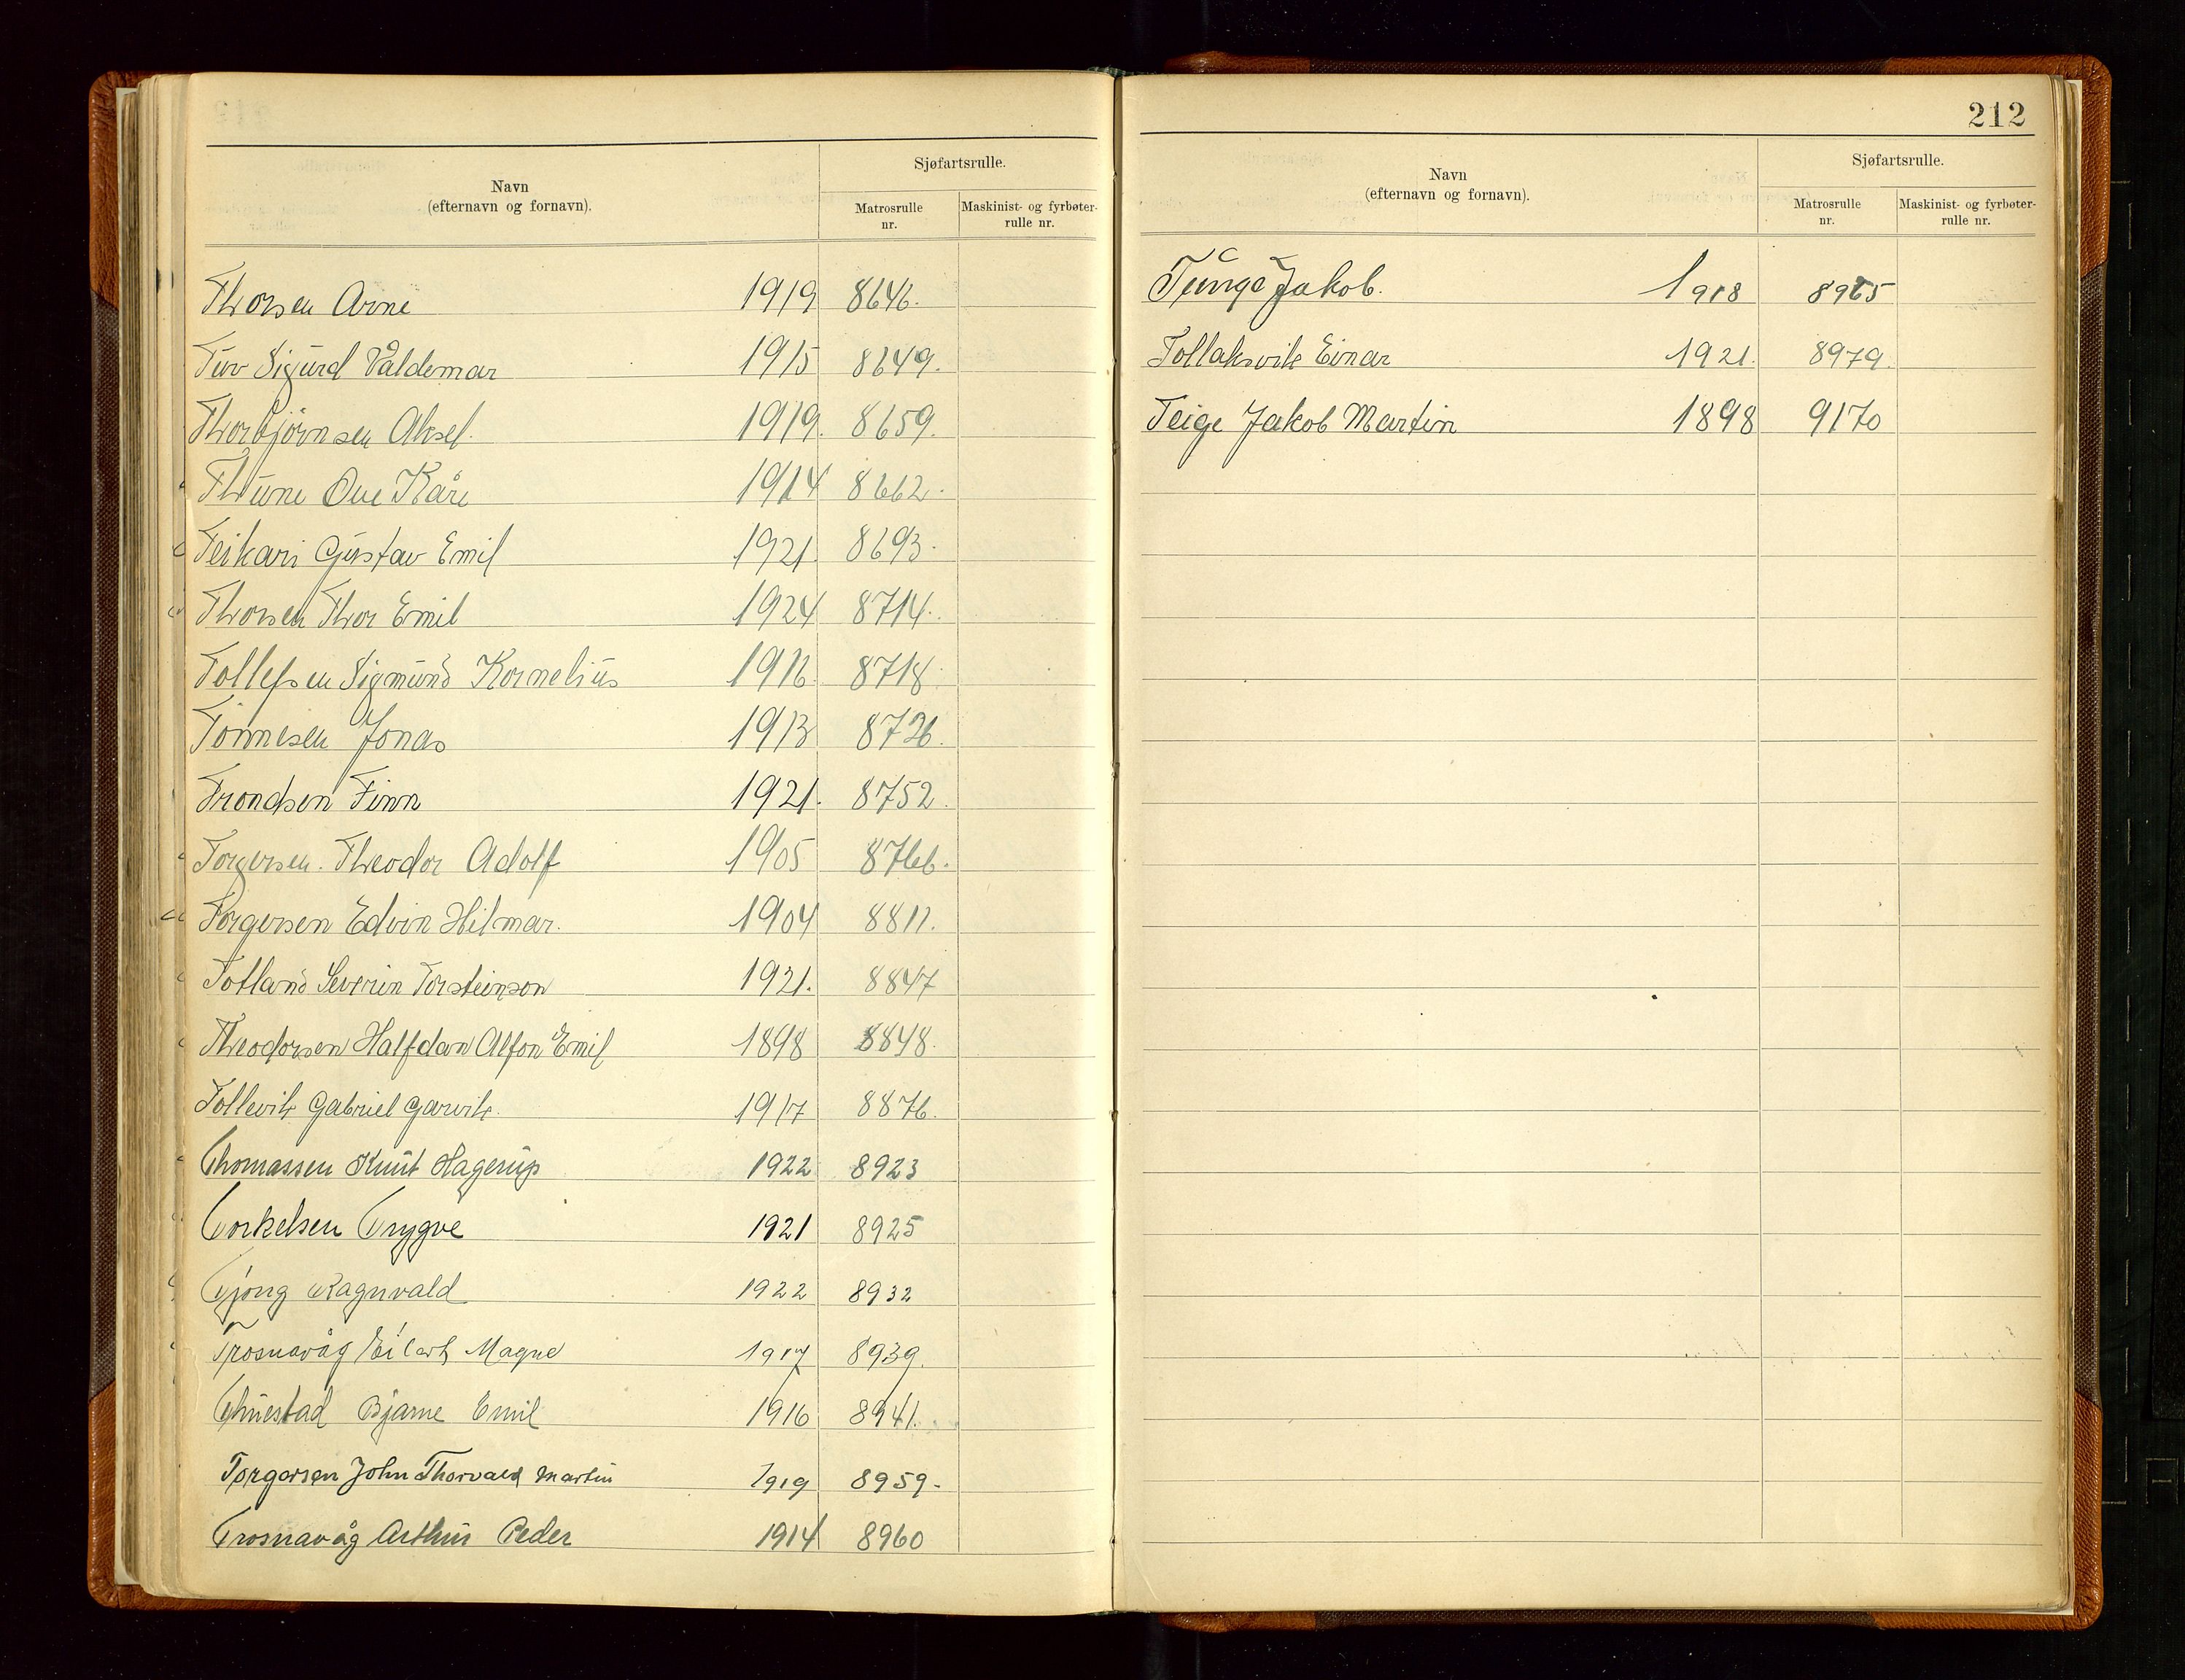 Navn
(efternavn og fornavn).
Sjøfartsrulle.
Matrosrulle
nr.
Maskinist- og fyrbøter-
rulle nr.
Thorsen Arne 1919 8646.
Tuv Sigurd Valdemar 1915 8649.
Thorbjörnsen Aksel. 1919. 8659.
Thune Ove Kåre 1914 8662.
Teikari Gustav Emil 1921 8693.
Thorsen Thor Emil 1924 8714.
Tollefsen Sigmund Kornelius 8718
Tönnesen Jonas 1913 8726.
Trondsen Finn 1921. 8752.
Torgersen. Theodor Adolf 1905 8766.
Torgersen Edvin Hilmar. 1904 8811.
Totland Severin Torsteinson 1921. 8847
Theodorsen Halfdan Alfon Emil 1898 8848.
Tollevik Gabriel Garvik. 1917 8876.
Thomassen Knut Hagerup 1922 8923
Torkelsen Trygve 1921 8925
Tjong Ragnvald 1922 8932
Trosnavåg Eilert Magne 1917 8939.
Thuestad Bjarne Emil 1916 8941.
Torgersen John Thorvald Martin 1919 8959.
Trosnavåg Arthur Peder 1914 8960
212
Navn
(efternavn og fornavn).
Sjøfartsrulle.
Matrosrulle
nr.
Maskinist- og fyrbøter-
rulle nr.
Tunge Jakob. 1918 8965
Tollaksvik Einar 1921. 8979.
Teige Jakob Martin 1898 9170